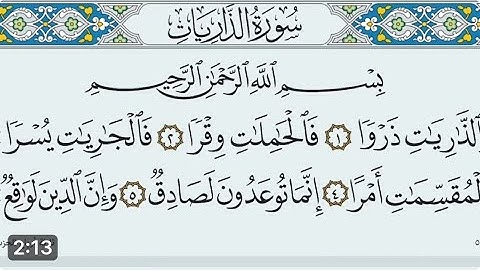 سُورَةُ الذَّارِيَاتِ
بِسْمِ ٱللَّهِ ٱلرَّحْمَٰنِ ٱلرَّحِيمِ
ٱلذَّٰرِيَٰتِ ذَرْوًا ١ فَٱلْحَٰمِلَٰتِ وِقْرًا ٢ فَٱلْجَٰرِيَٰتِ يُسْرًا
لْمُقَسِّمَٰتِ أَمْرًا ٤ إِنَّمَا تُوعَدُونَ لَصَادِقٌ ٥ وَإِنَّ ٱلدِّينَ لَوَٰقِعٌ
2:13